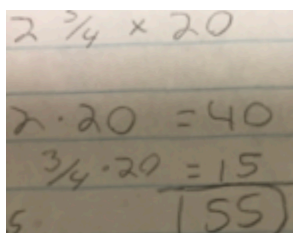 2 3/4 × 20
2 · 20 = 40
3/4 · 20 = 15
55